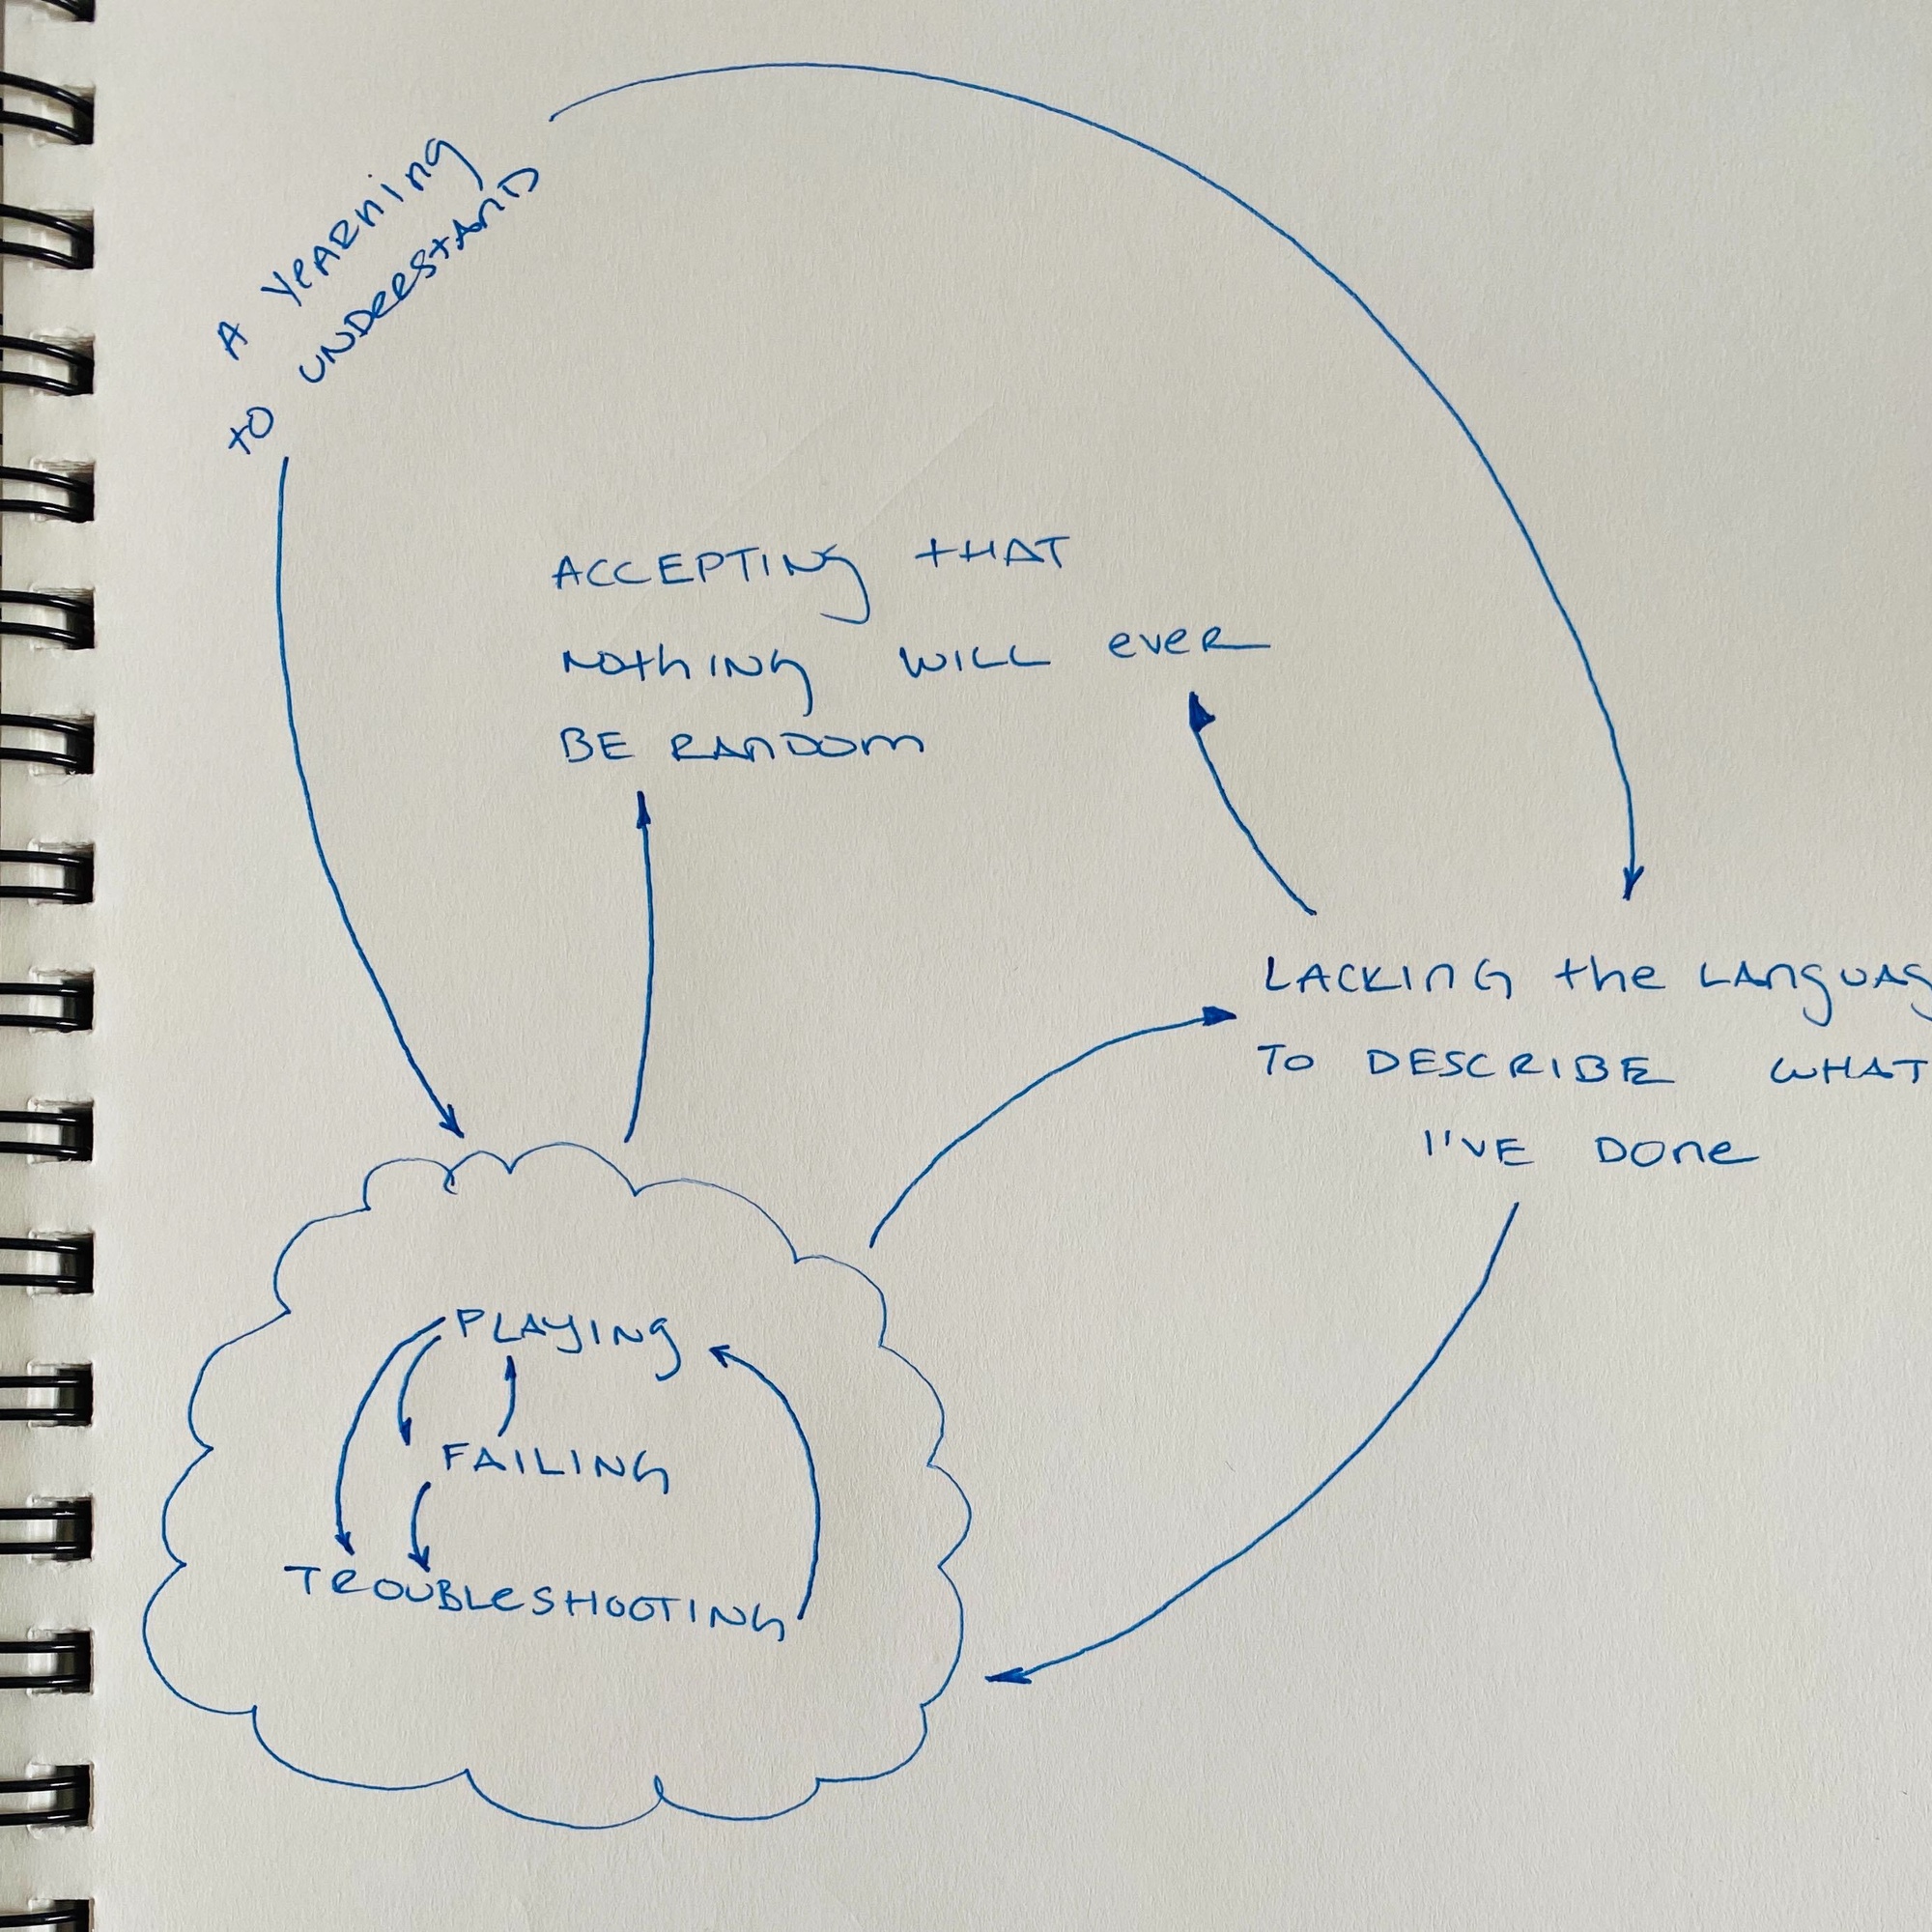 A YEARning
to UNDERSTAND
ACCEPTING tHAT
nothING WILL ever
BE RANDOM
LACKING the LANGUAG
TO DESCRIBE WHAT
I'VE Done
PLAYING
FAILING
TROUBLeSHOOTING